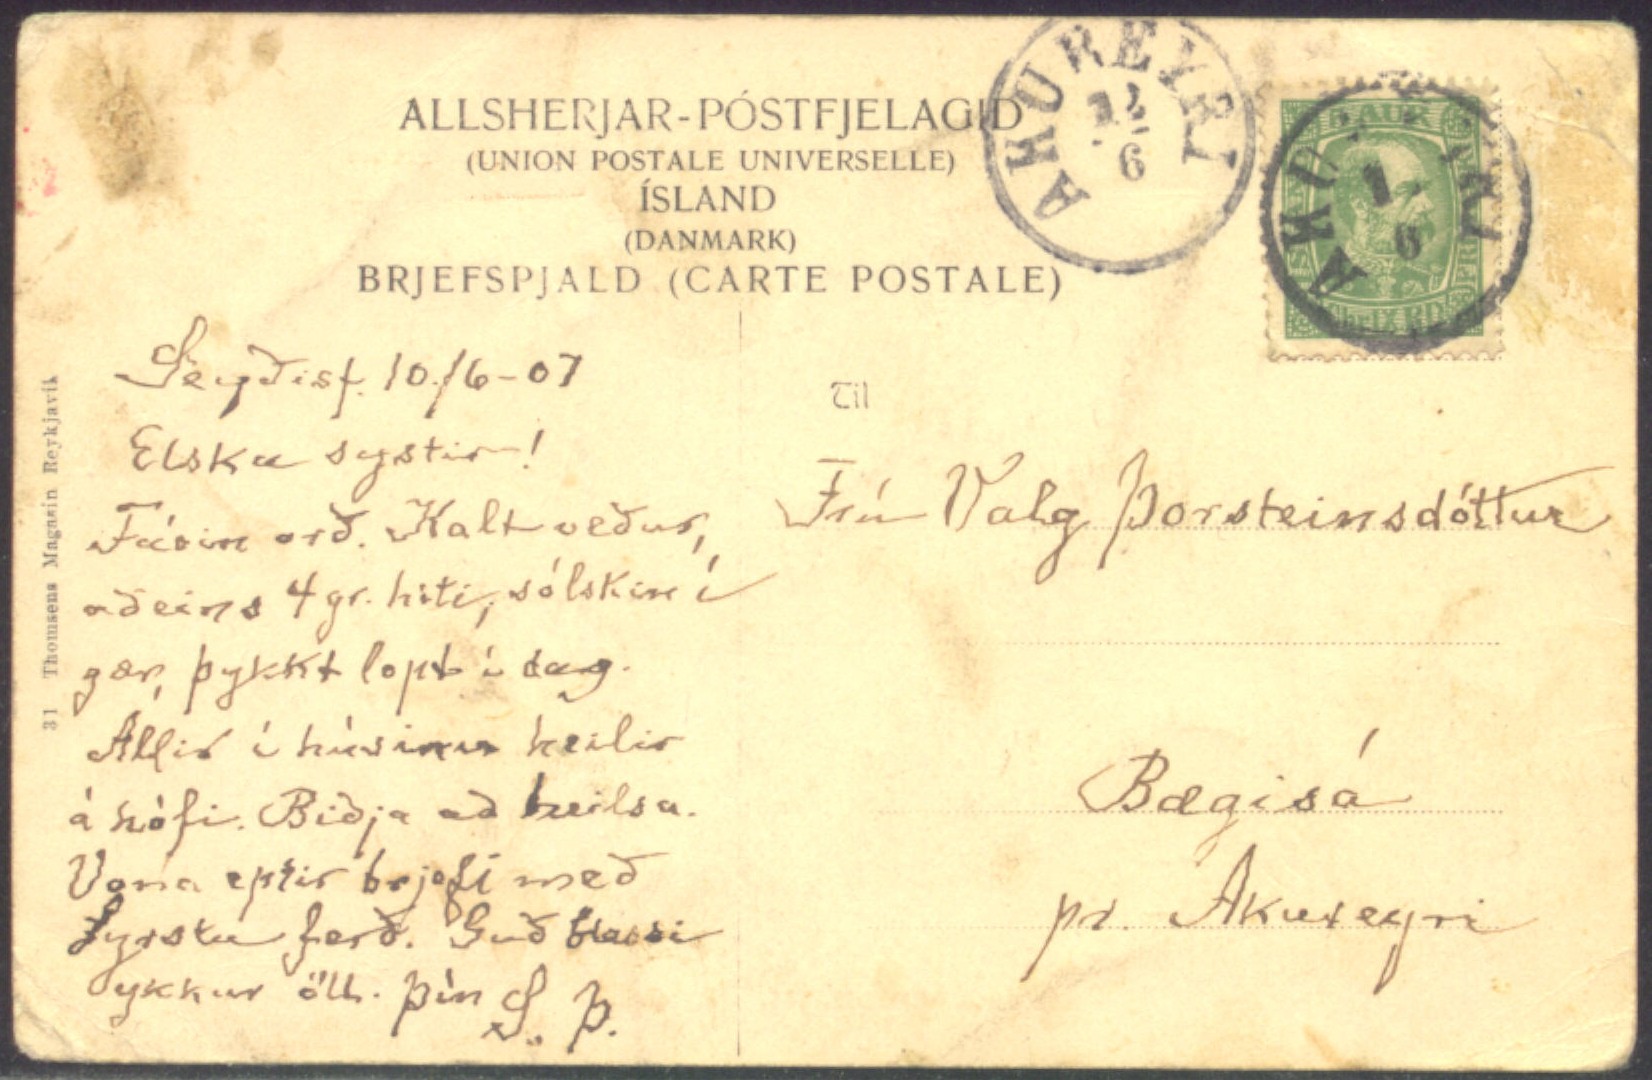 ALLSHERJAR-PÓSTFJELAGIÐ
(UNION POSTALE UNIVERSELLE)
ÍSLAND
(DANMARK)
BRJEFSPJALD (CARTE POSTALE)
AKUREYRI
12/6
AKUREYRI
6
31 Thomsens Magasin Reykjavík
Seyðisf. 10./6-07
Elsku systir!
Fáein orð. Kalt veður,
aðeins 4 gr. hiti, sólskin í
gær, þykkt lopt í dag.
Allir í húsinu heilir
á hófi. Biðja að heilsa.
Vona eptir brjefi með
fyrstu ferð. Guð blessi
ykkur öll. Þín S. Þ.
Til
Frú Valg Þorsteinsdóttur
Bægisá
pr. Akureyri